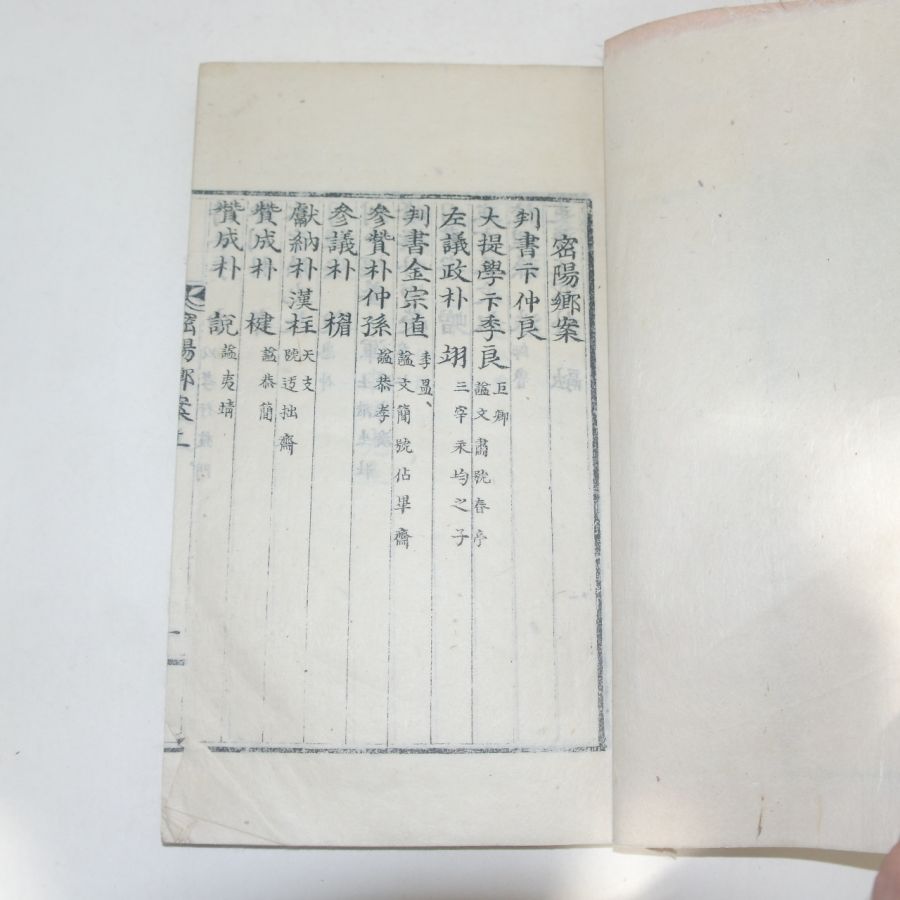 密陽鄉案
判書卞仲良
大提學卞季良 巨卿 諡文肅號春亭
左議政朴 翊 三宰 之子
判書金宗直 季昷 諡文簡號佔畢齋
參贊朴仲孫 諡恭孝
參議朴 楣
獻納朴漢柱 天支 號迃拙齋
贊成朴 楗 諡恭簡
贊成朴 說 諡夷靖
密陽鄉案
一